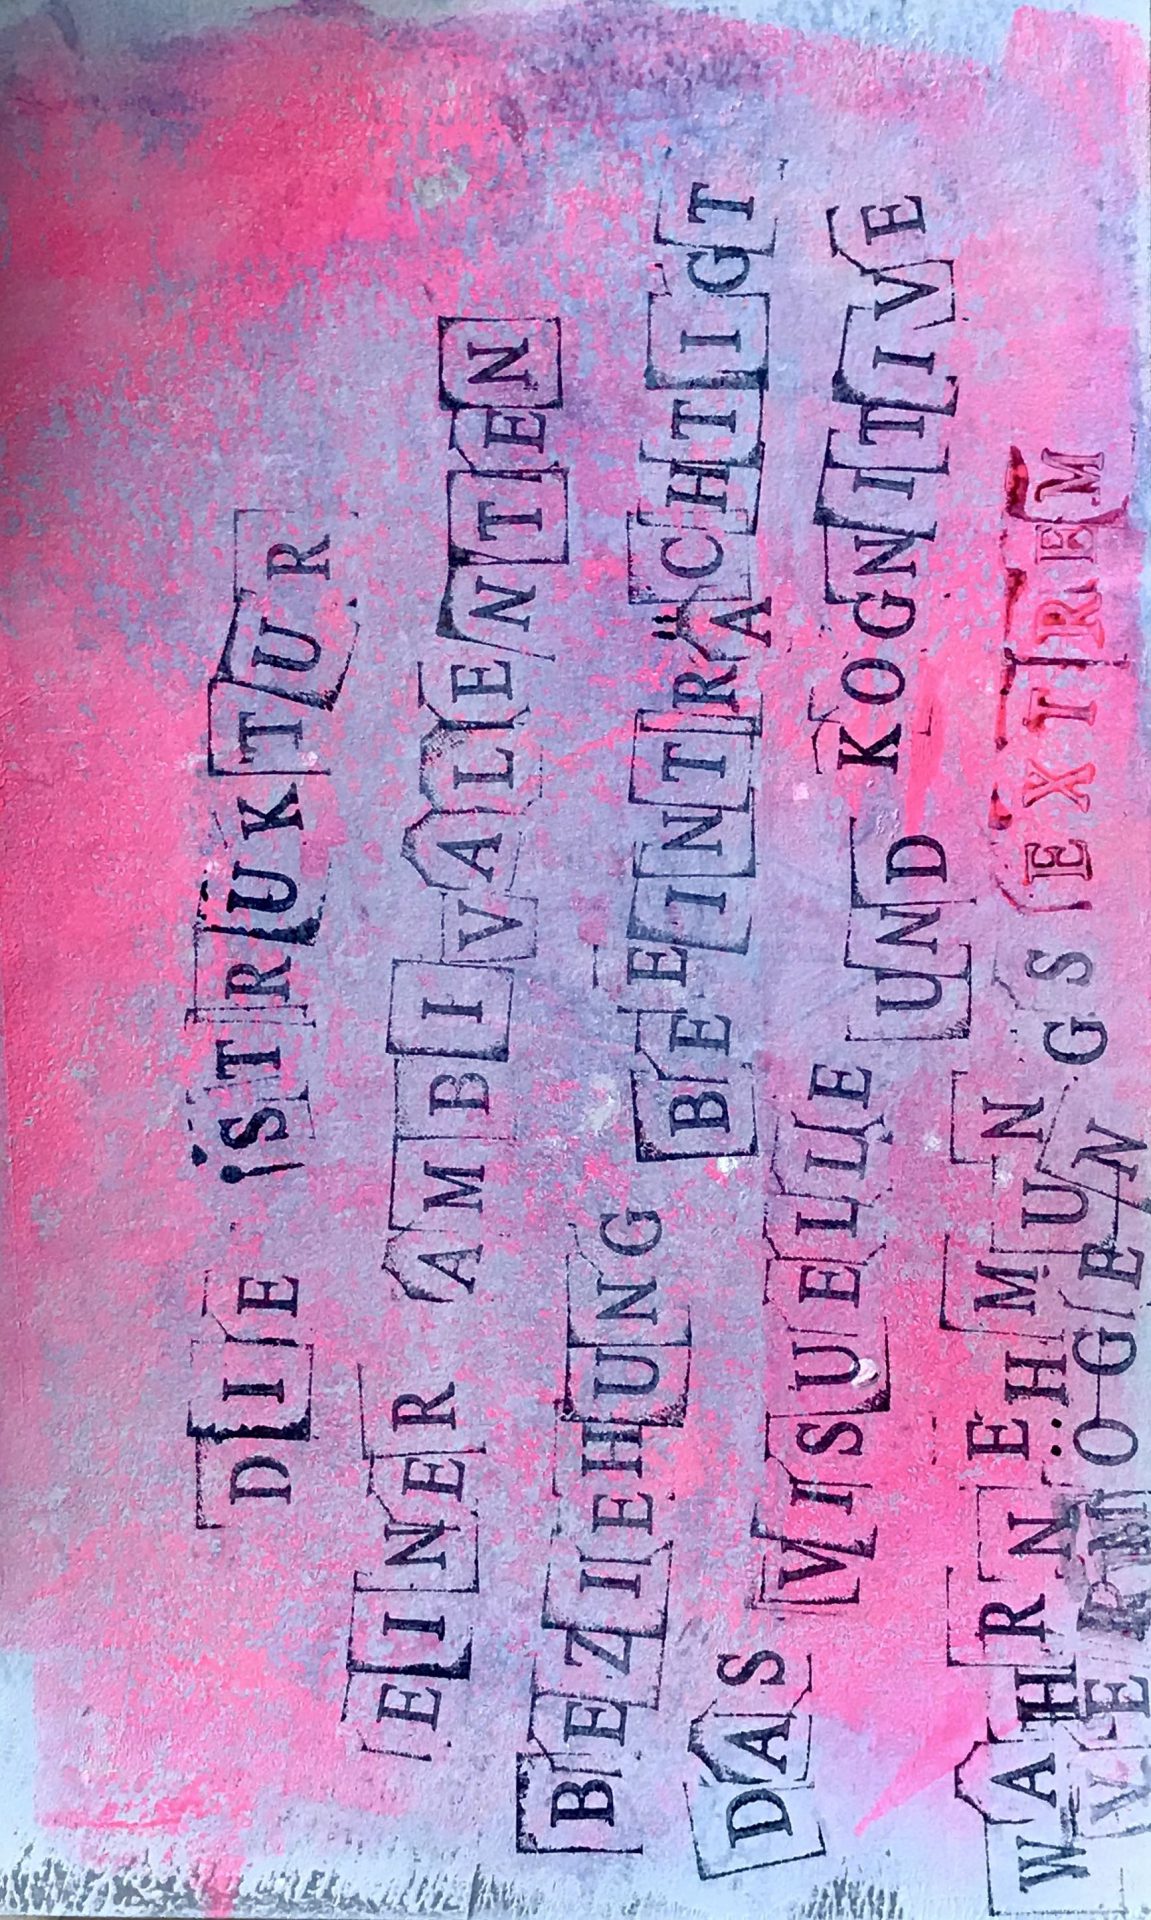 DIE STRUKTUR
EINER AMBIVALENTEN
BEZIEHUNG BEEINTRÄCHTIGT
DAS VISUELLE UND KOGNITIVE
WAHRNEHMUNGS EXTREM
VERMÖGEN